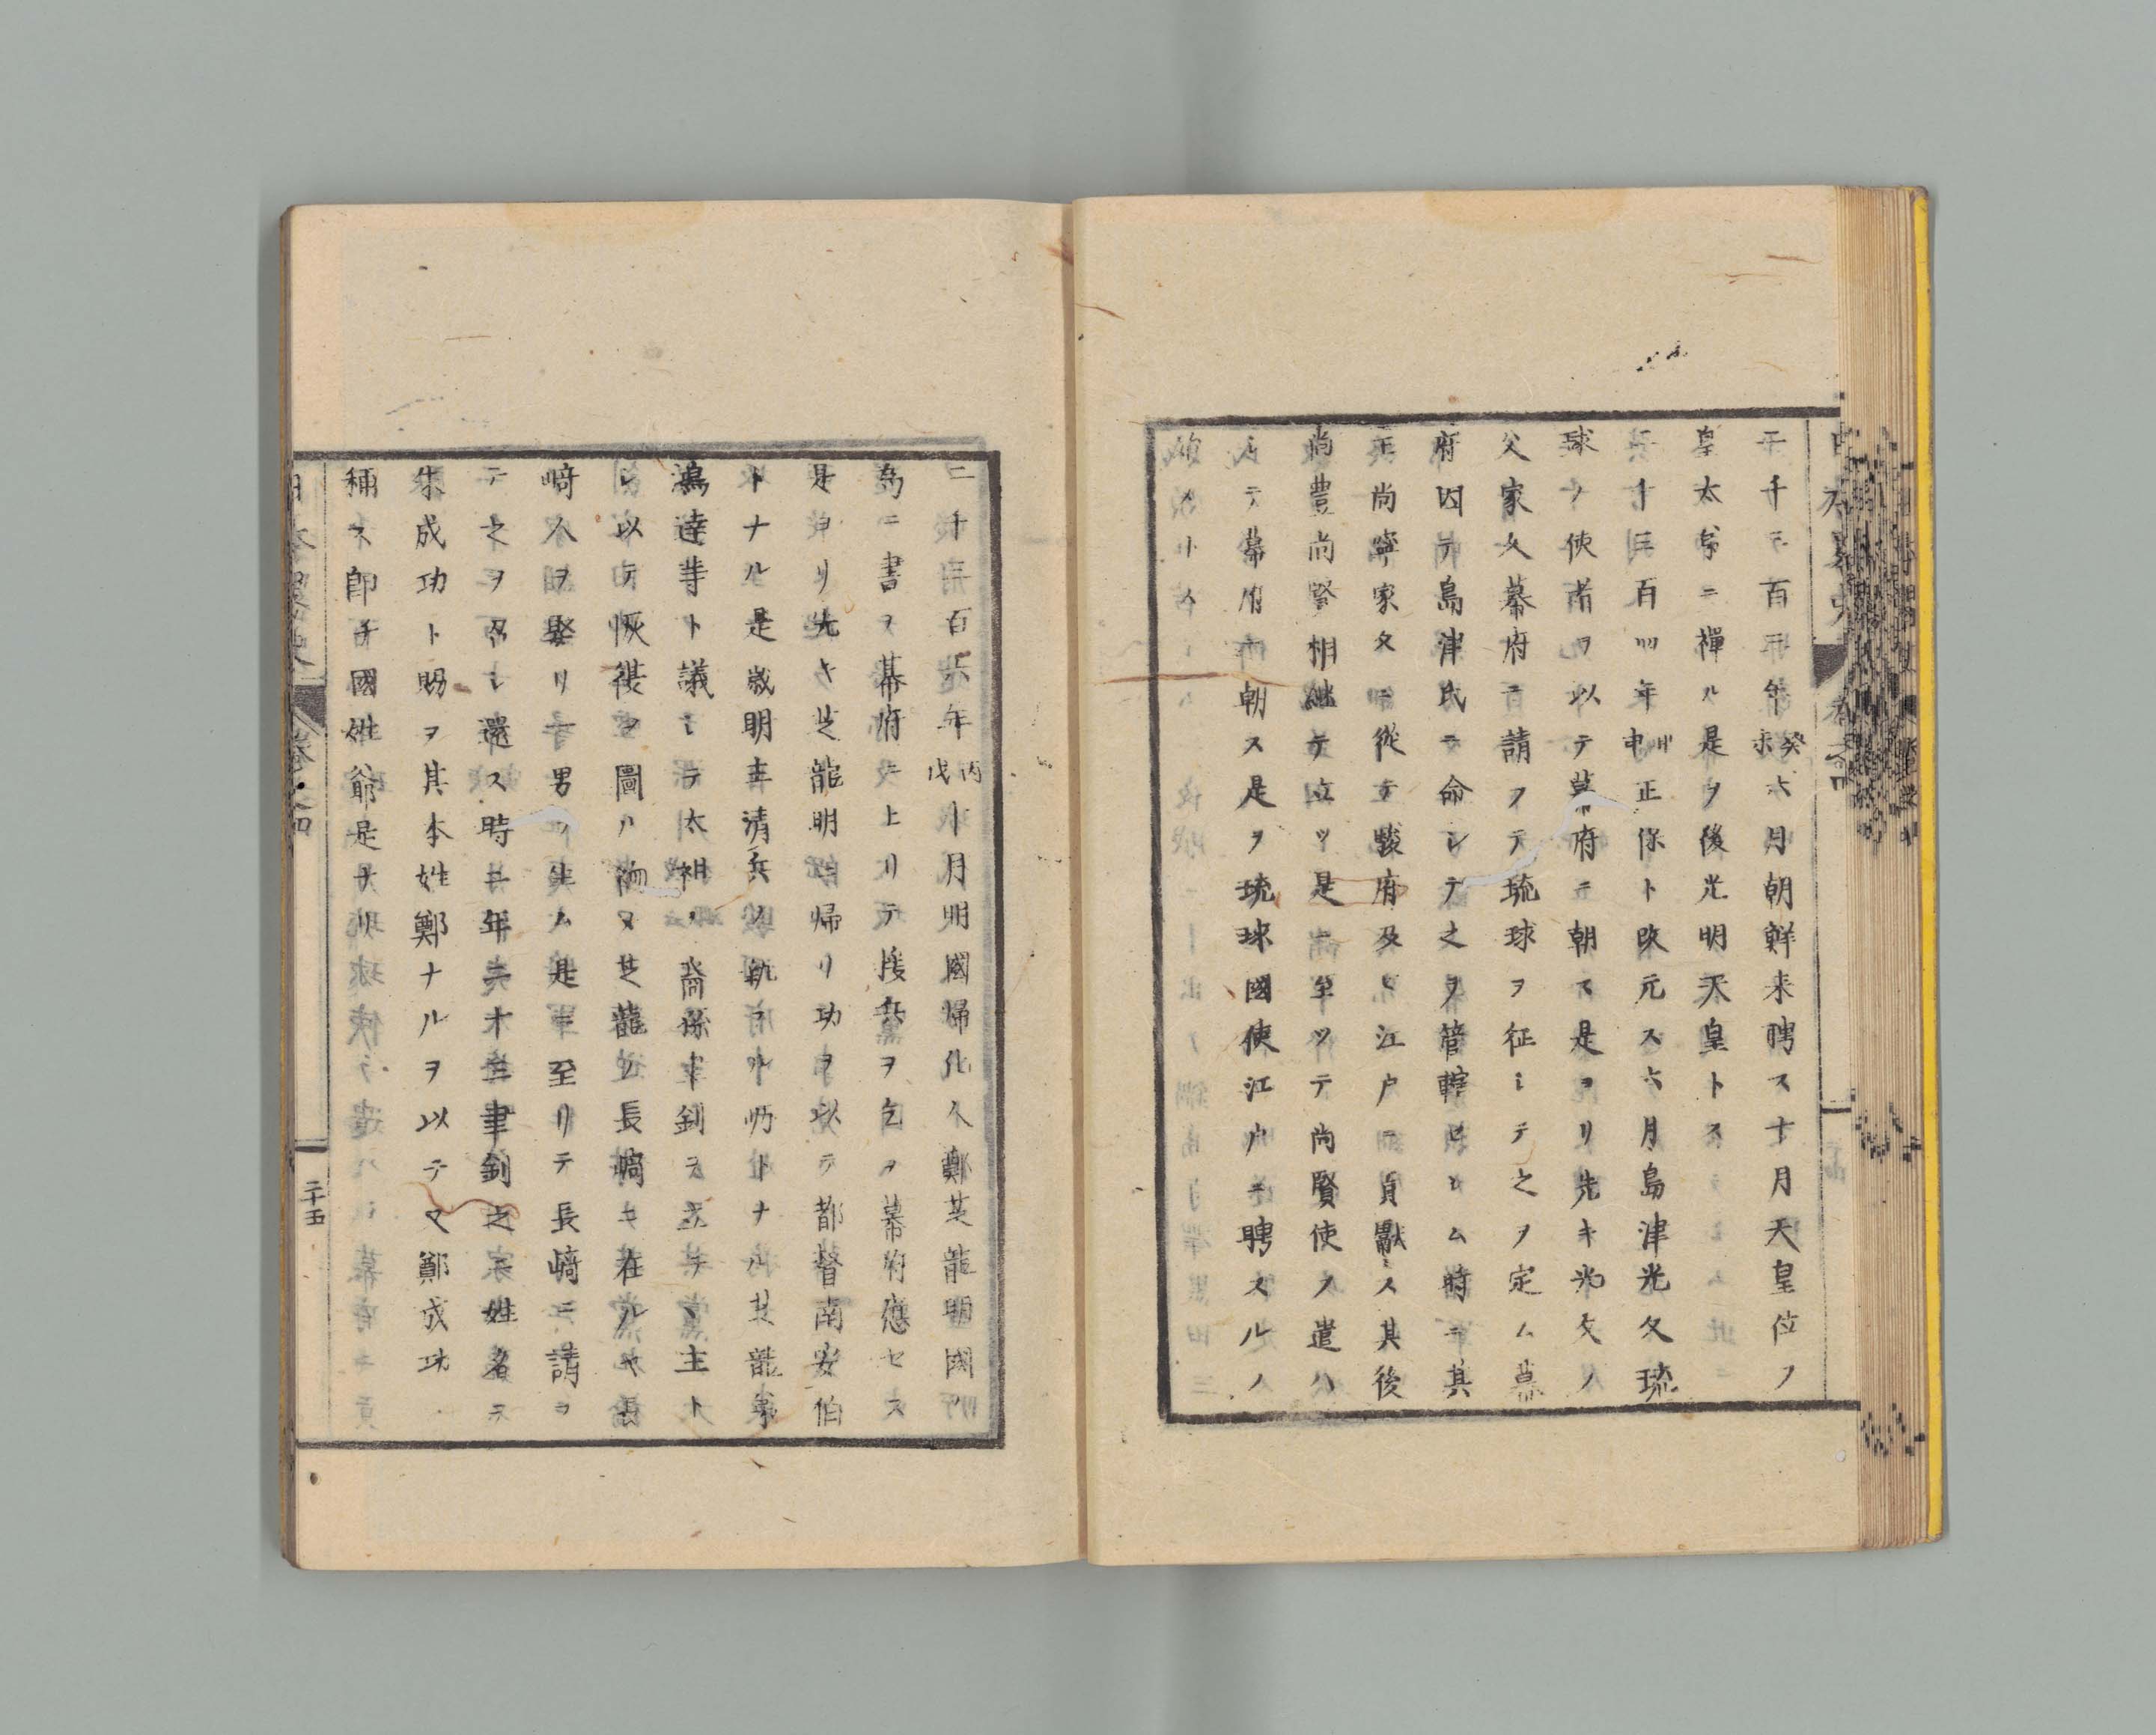 二千三百三年癸未六月朝鮮来聘ス十月天皇位ヲ
皇太弟ニ禪ル是ヲ後光明天皇トス
二千三百四年甲申正保ト改元ス六月島津光久琉
球ノ使者ヲ以テ幕府ニ朝ス是ヨリ先キ光久ノ
父家久幕府ニ請フテ琉球ヲ征シテ之ヲ定ム幕
府因テ島津氏ニ命シテ之ヲ管轄セム時ニ其
王尚寧家久ニ從テ駿府及ヒ江戸ニ貢獻ス其後
尚豊尚賢相継テ立ツ是ニ至ツテ尚賢使ヲ遣ハ
シテ幕府ニ朝ス是ヲ琉球國使江戸ニ聘スルノ
始メトス
二千三百六年丙戌十月明國帰化人鄭芝龍明國ノ
為ニ書ヲ幕府ニ上リテ援兵ヲ乞フ幕府應セス
是ヨリ先キ芝龍明ニ帰リ功ヲ以テ都督南安伯
トナル是歳明主清兵ノ執フル所トナル芝龍弟
鴻逵等ト議シテ太祖ノ裔孫聿釗ヲ立テヽ主ト
シ以テ恢復ヲ圖ル初メ芝龍ノ長﨑ニ在ルヤ長
﨑人ヲ娶リ一男ヲ生ム是ニ至リテ長﨑ニ請ヲ
テ之ヲ召シ還ス時ニ年二十二聿釗之ニ姓名ヲ
朱成功ト賜ヲ其本姓鄭ナルヲ以テ又鄭成功
稱ス即チ國姓爺是ナリ
日本畧史 卷之四 二十五